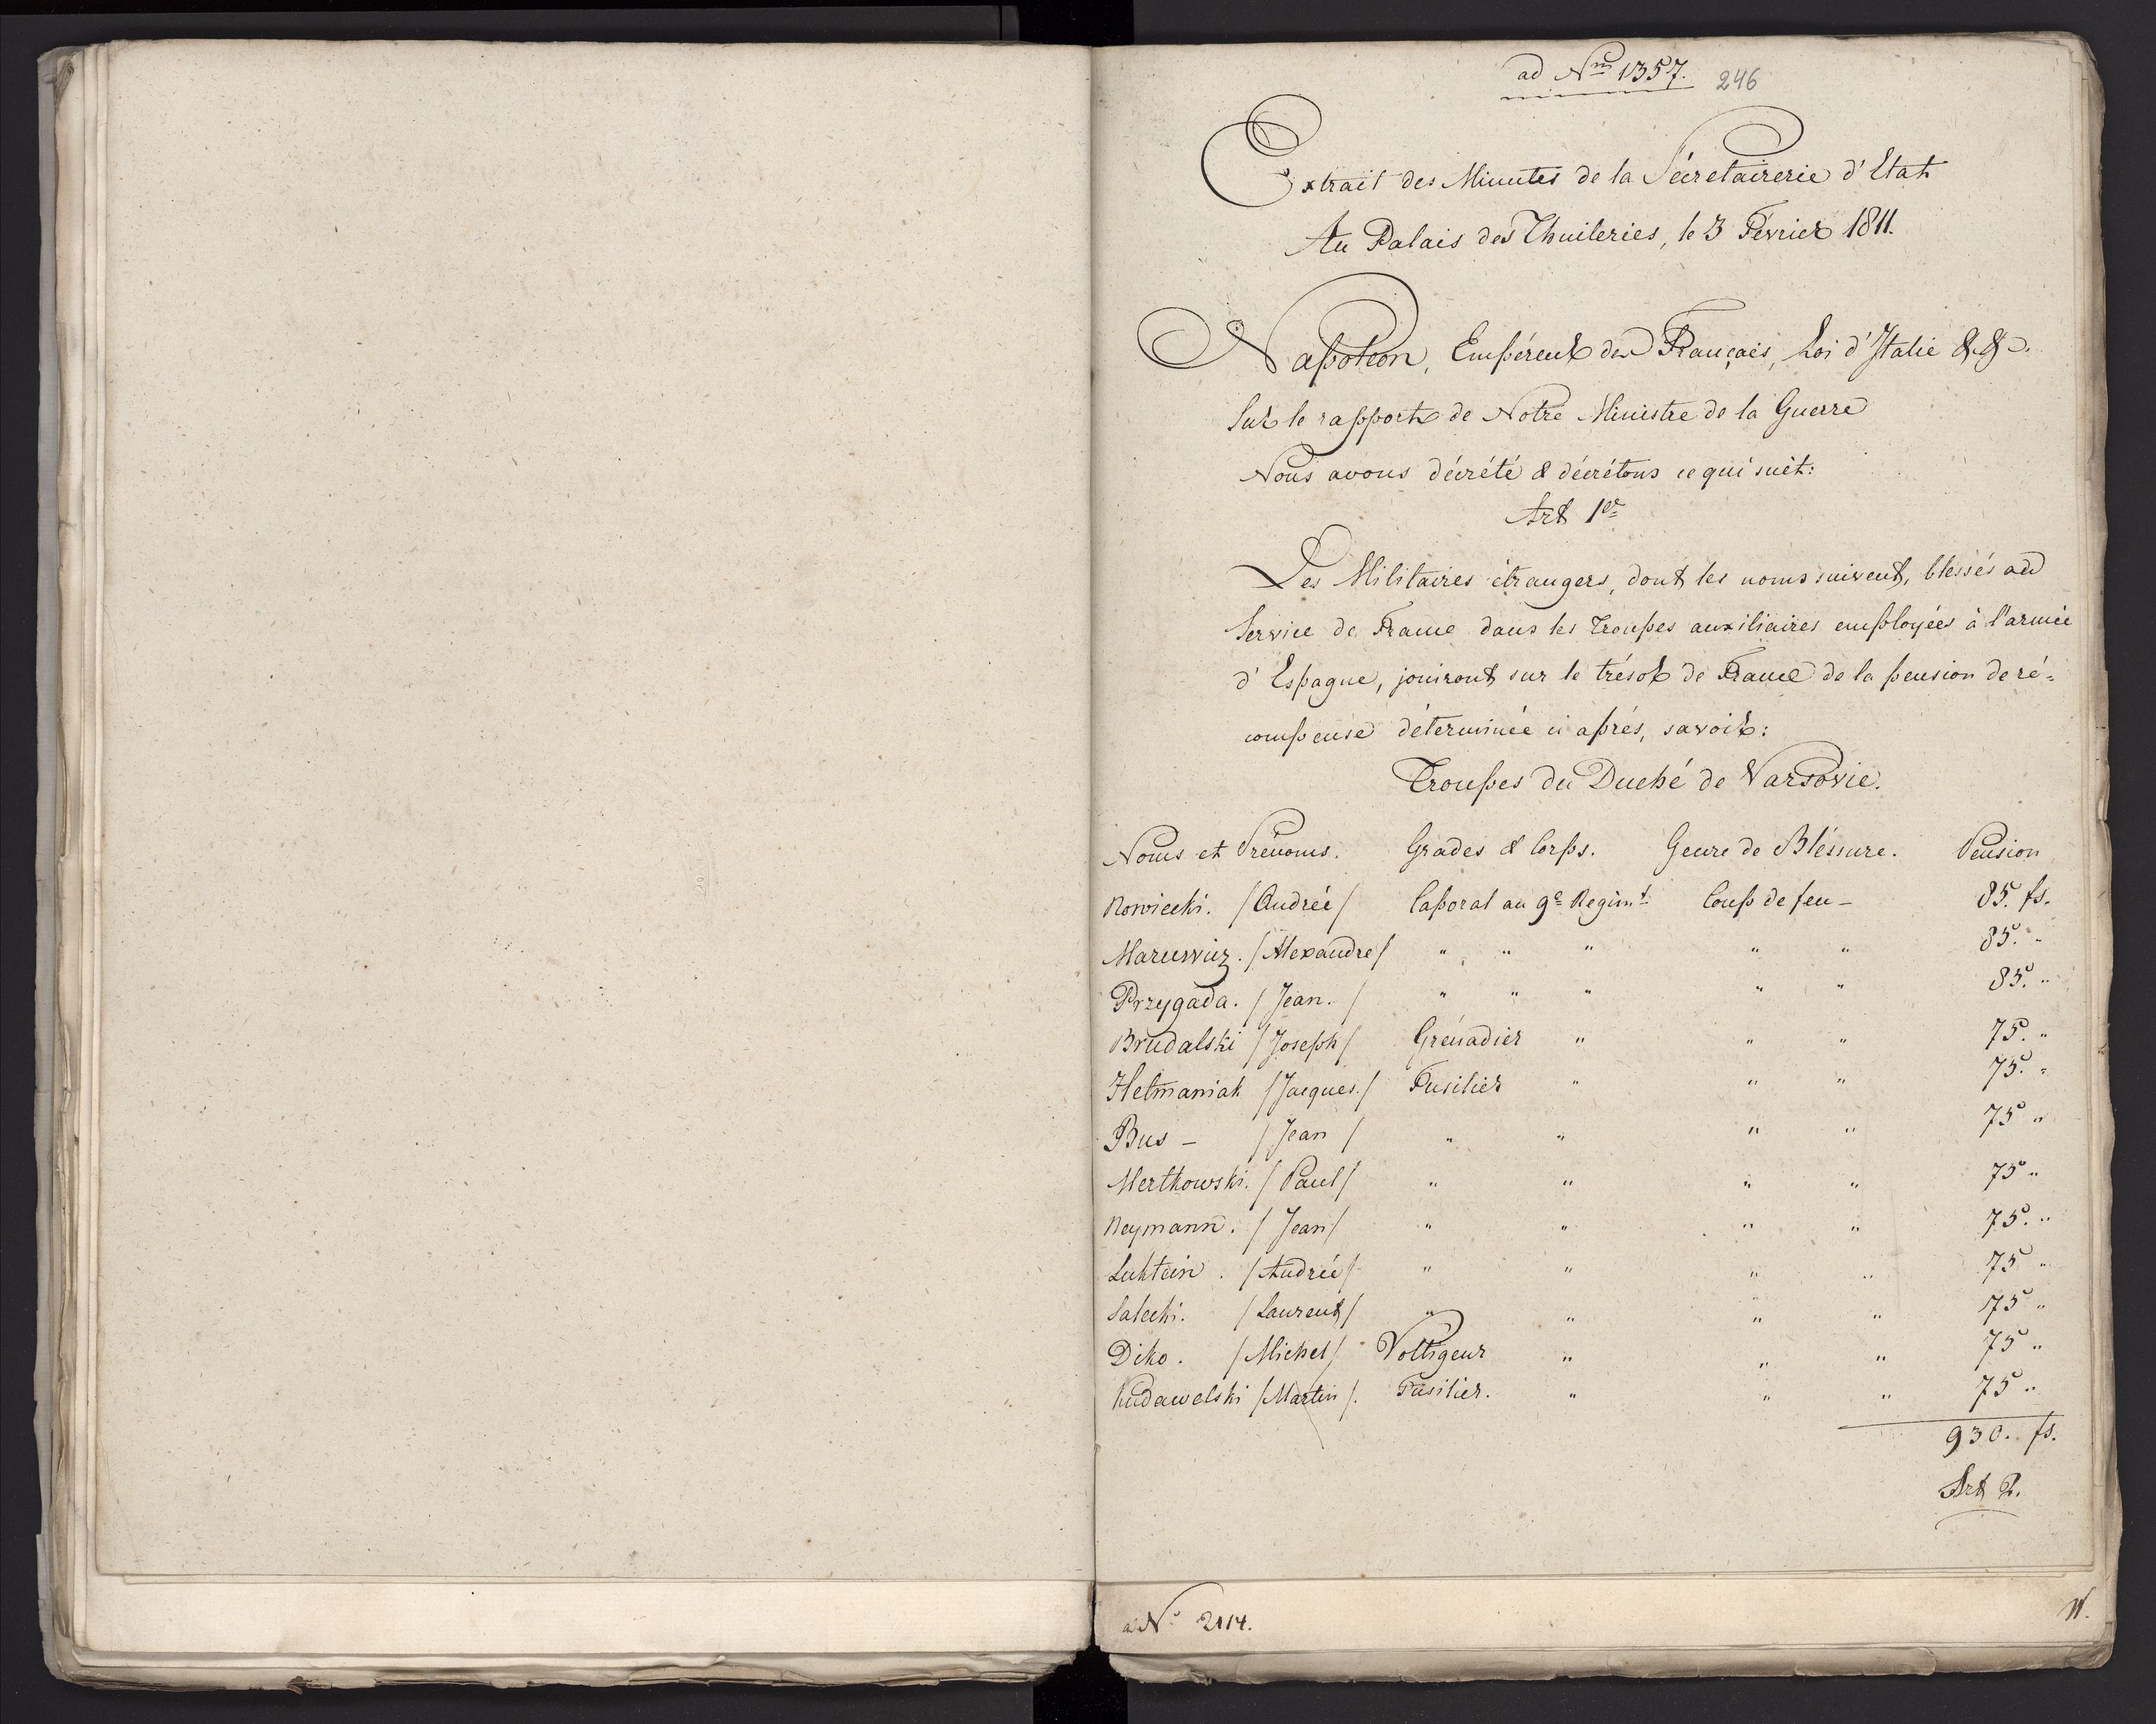 ad Nm 1357. 246
Extrait des Minutes de la Sécretairerie d'Etat
Au Palais des Thuileries, le 3 Février 1811.
Napoleon, Empéreur des Français, Roi d'Italie &.&.
Sur le rapport de Notre Ministre de la Guerre
Nous avons décrété & décrétons ce qui suit:
Art 1er
Les Militaires étrangers, dont les noms suivent, blessés au
Service de France dans les Troupes auxiliaires employées à l'armée
d'Espagne, jouiront sur le trésor de France de la pension de ré=
compense déterminée ci après, savoir:
Troupes du Duché de Varsovie.
Noms et Prénoms. Grades & Corps. Genre de Bléssure. Pension
Nowiecki. /Andréé/ Caporal au 9e Regimt. Coup de feu – 85. fs.
/Alexandre/ " " " " " 85. "
Przygada. /Jean./ " " " " " 85. "
Brudalski /Joseph/ Grénadier " " " 75. "
Hetmaniak /Jacques./ Fusilier " " " 75. "
Bus – /Jean/ " " " " 75 "
Merthowski. /Paul/ " " " " 75 "
Neymann. /Jean/ " " " " 75. "
Luktein. /Andréé/ " " " " 75 "
Salecki. /Laurent/ " " " " 75 "
Diko. /Michel/ Voltigeur " " " 75 "
Kudawelski /Martin/. Fusilier. " " " 75 "
930. fs.
Art 2.
ad No 2114.